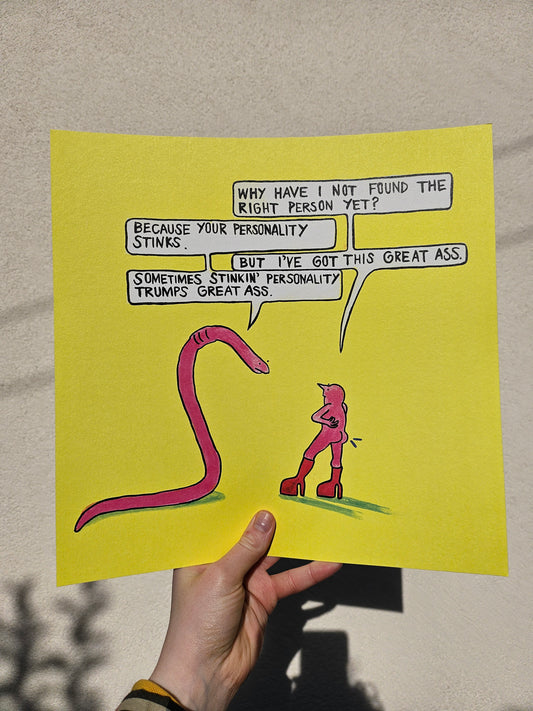 WHY HAVE I NOT FOUND THE
RIGHT PERSON YET?
BECAUSE YOUR PERSONALITY
STINKS.
BUT I'VE GOT THIS GREAT ASS.
SOMETIMES STINKIN' PERSONALITY
TRUMPS GREAT ASS.